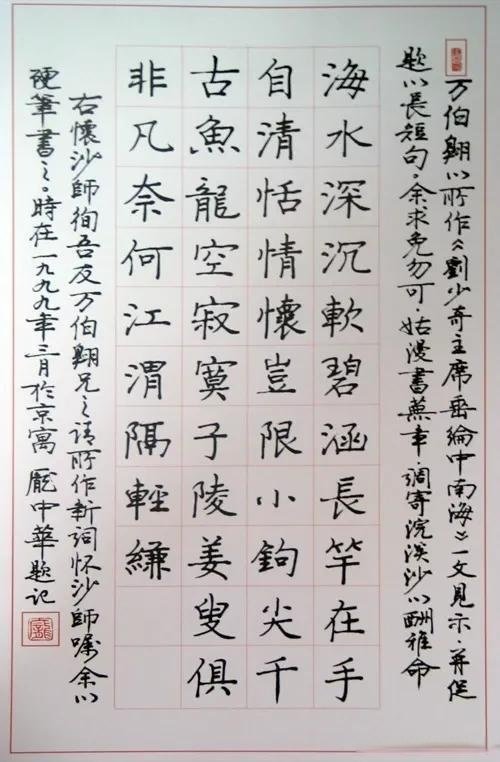 万伯翱以所作《劉少奇主席垂綸中南海》一文見示。并促
题以長短句。余求免勿可。姑漫書蕪章 調寄浣溪沙以酬雅命
海水深沉軟碧涵長竿在手
自清恬情懷豈限小鉤尖千
古魚龍空寂寞子陵姜叟俱
非凡奈何江渭隔輕縑
右懷沙師徇吾友万伯翱兄之請所作新詞怀沙師嘱余以
硬筆書之。時在一九九九年三月於京寓 龐中華题记